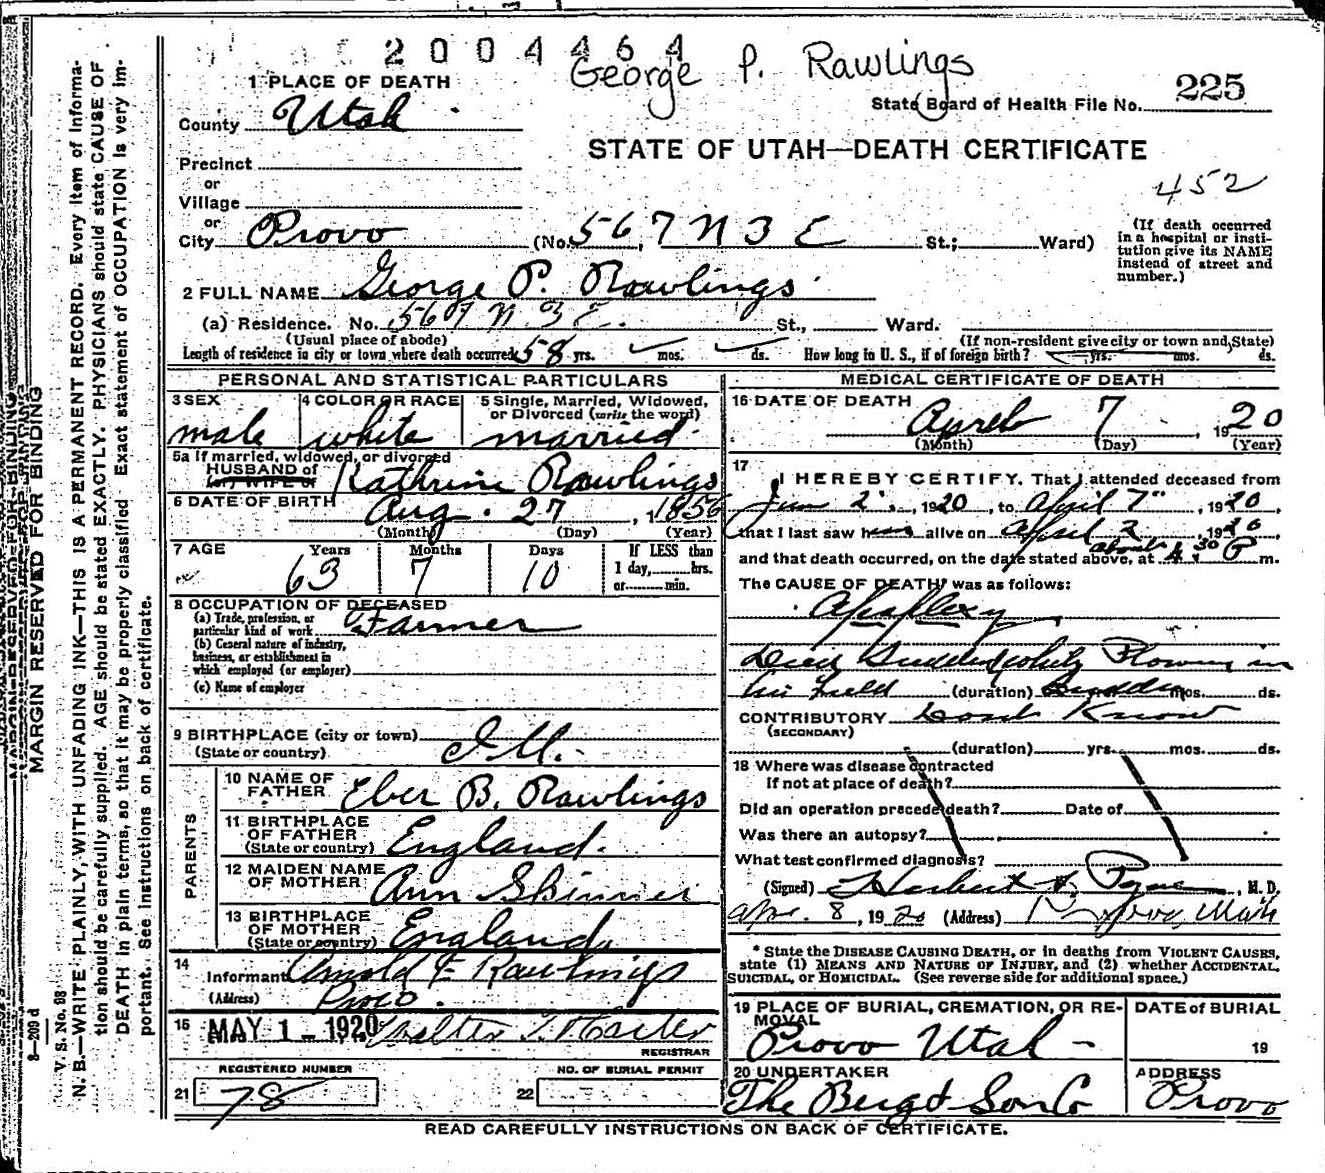 2004464
George P. Rawlings
1 PLACE OF DEATH
State Board of Health File No. 225
County Utah
STATE OF UTAH—DEATH CERTIFICATE
Precinct
452
or
Village
or
City Provo (No. 567 N 3 E St.; Ward)
(If death occurred
in a hospital or insti-
tution give its NAME
instead of street and
number.)
2 FULL NAME George P. Rawlings
(a) Residence. No. 567 N. 3 E. St., Ward.
(Usual place of abode) (If non-resident give city or town and State)
Length of residence in city or town where death occurred 58 yrs. mos. ds. How long in U. S., if of foreign birth? yrs. mos. ds.
PERSONAL AND STATISTICAL PARTICULARS
3 SEX male
4 COLOR OR RACE white
5 Single, Married, Widowed,
or Divorced (write the word)
married
5a If married, widowed, or divorced
HUSBAND of
(or) WIFE of Kathrine Rawlings
6 DATE OF BIRTH Aug. 27, 1856
(Month) (Day) (Year)
7 AGE Years Months Days If LESS than
63 7 10 1 day, hrs.
or min.
8 OCCUPATION OF DECEASED
(a) Trade, profession, or
particular kind of work Farmer
(b) General nature of industry,
business, or establishment in
which employed (or employer)
(c) Name of employer
9 BIRTHPLACE (city or town)
(State or country) Ill.
PARENTS
10 NAME OF
FATHER Eber B. Rawlings
11 BIRTHPLACE
OF FATHER
(State or country) England.
12 MAIDEN NAME
OF MOTHER Ann Skinner
13 BIRTHPLACE
OF MOTHER
(State or country) England.
14
Informant Arnold F Rawlings
(Address) Provo.
15 MAY 1 - 1920 Walter T.
REGISTRAR
REGISTERED NUMBER NO. OF BURIAL PERMIT
21 78 22
MEDICAL CERTIFICATE OF DEATH
16 DATE OF DEATH April 7, 1920
(Month) (Day) (Year)
17
I HEREBY CERTIFY. That I attended deceased from
2, 1920, to April 7", 1920,
that I last saw him alive on April 2 1920
and that death occurred, on the date stated above, at about 4:30 P m.
The CAUSE OF DEATH* was as follows:
Apoplexy
Died Suddenly while Plowing in
his field (duration) Sudden mos. ds.
CONTRIBUTORY Dont Know
(SECONDARY)
(duration) yrs. mos. ds.
18 Where was disease contracted
If not at place of death?
Did an operation precede death? Date of
Was there an autopsy?
What test confirmed diagnosis?
(Signed) Herbert S. Pyne, M. D.
Apr. 8, 1920 (Address) Provo, Utah
* State the DISEASE CAUSING DEATH, or in deaths from VIOLENT CAUSES,
state (1) MEANS AND NATURE OF INJURY, and (2) whether ACCIDENTAL,
SUICIDAL, or HOMICIDAL. (See reverse side for additional space.)
19 PLACE OF BURIAL, CREMATION, OR RE-
MOVAL
Provo Utah -
DATE of BURIAL
19
20 UNDERTAKER
The Berg & Son Co
ADDRESS
Provo
READ CAREFULLY INSTRUCTIONS ON BACK OF CERTIFICATE.
MARGIN RESERVED FOR BINDING
3—209 d
V. S. No. 98
N. B.—WRITE PLAINLY, WITH UNFADING INK—THIS IS A PERMANENT RECORD. Every item of informa-
tion should be carefully supplied. AGE should be stated EXACTLY. PHYSICIANS should state CAUSE OF
DEATH in plain terms, so that it may be properly classified Exact statement of OCCUPATION is very im-
portant. See instructions on back of certificate.